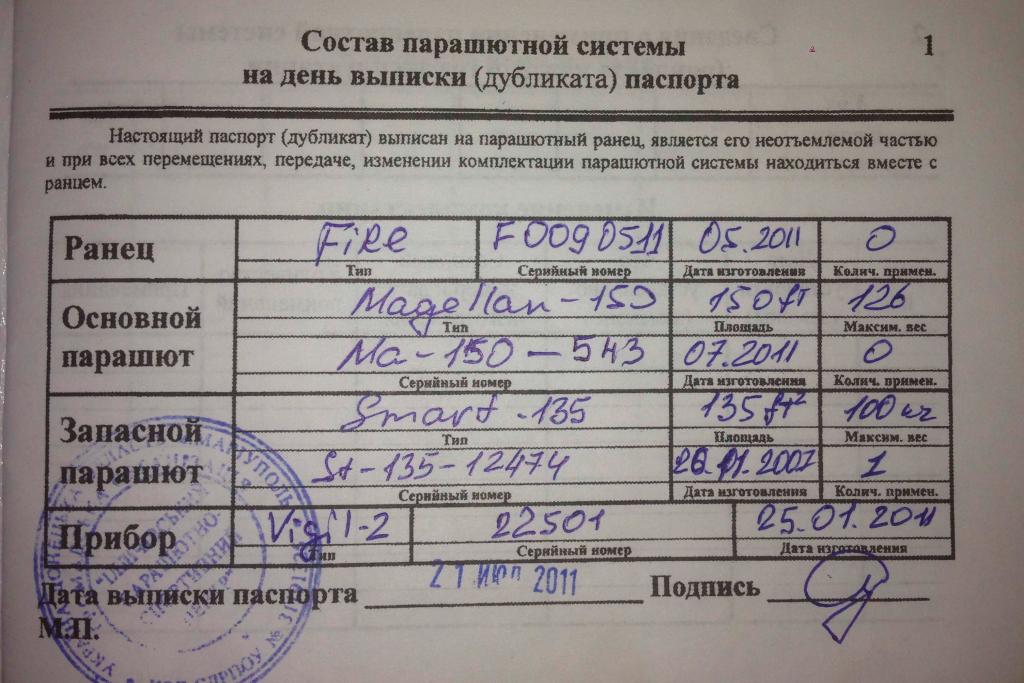 Состав парашютной системы 1
на день выписки (дубликата) паспорта
Настоящий паспорт (дубликат) выписан на парашютный ранец, является его неотъемлемой частью
и при всех перемещениях, передаче, изменении комплектации парашютной системы находиться вместе с
ранцем.
Ранец Fire F0090511 05.2011 0
Тип Серийный номер Дата изготовления Колич. примен.
Основной парашют Magellan-150 150 ft 126
Тип Площадь Максим. вес
Ma-150-543 07.2011 0
Серийный номер Дата изготовления Колич. примен.
Запасной парашют Smart-135 135 ft² 100 кг
Тип Площадь Максим. вес
St-135-12474 26.01.2007 1
Серийный номер Дата изготовления Колич. примен.
Прибор Vigil-2 22501 25.01.2011
Тип Серийный номер Дата изготовления
Дата выписки паспорта 21 ИЮЛ 2011 Подпись
М.П.